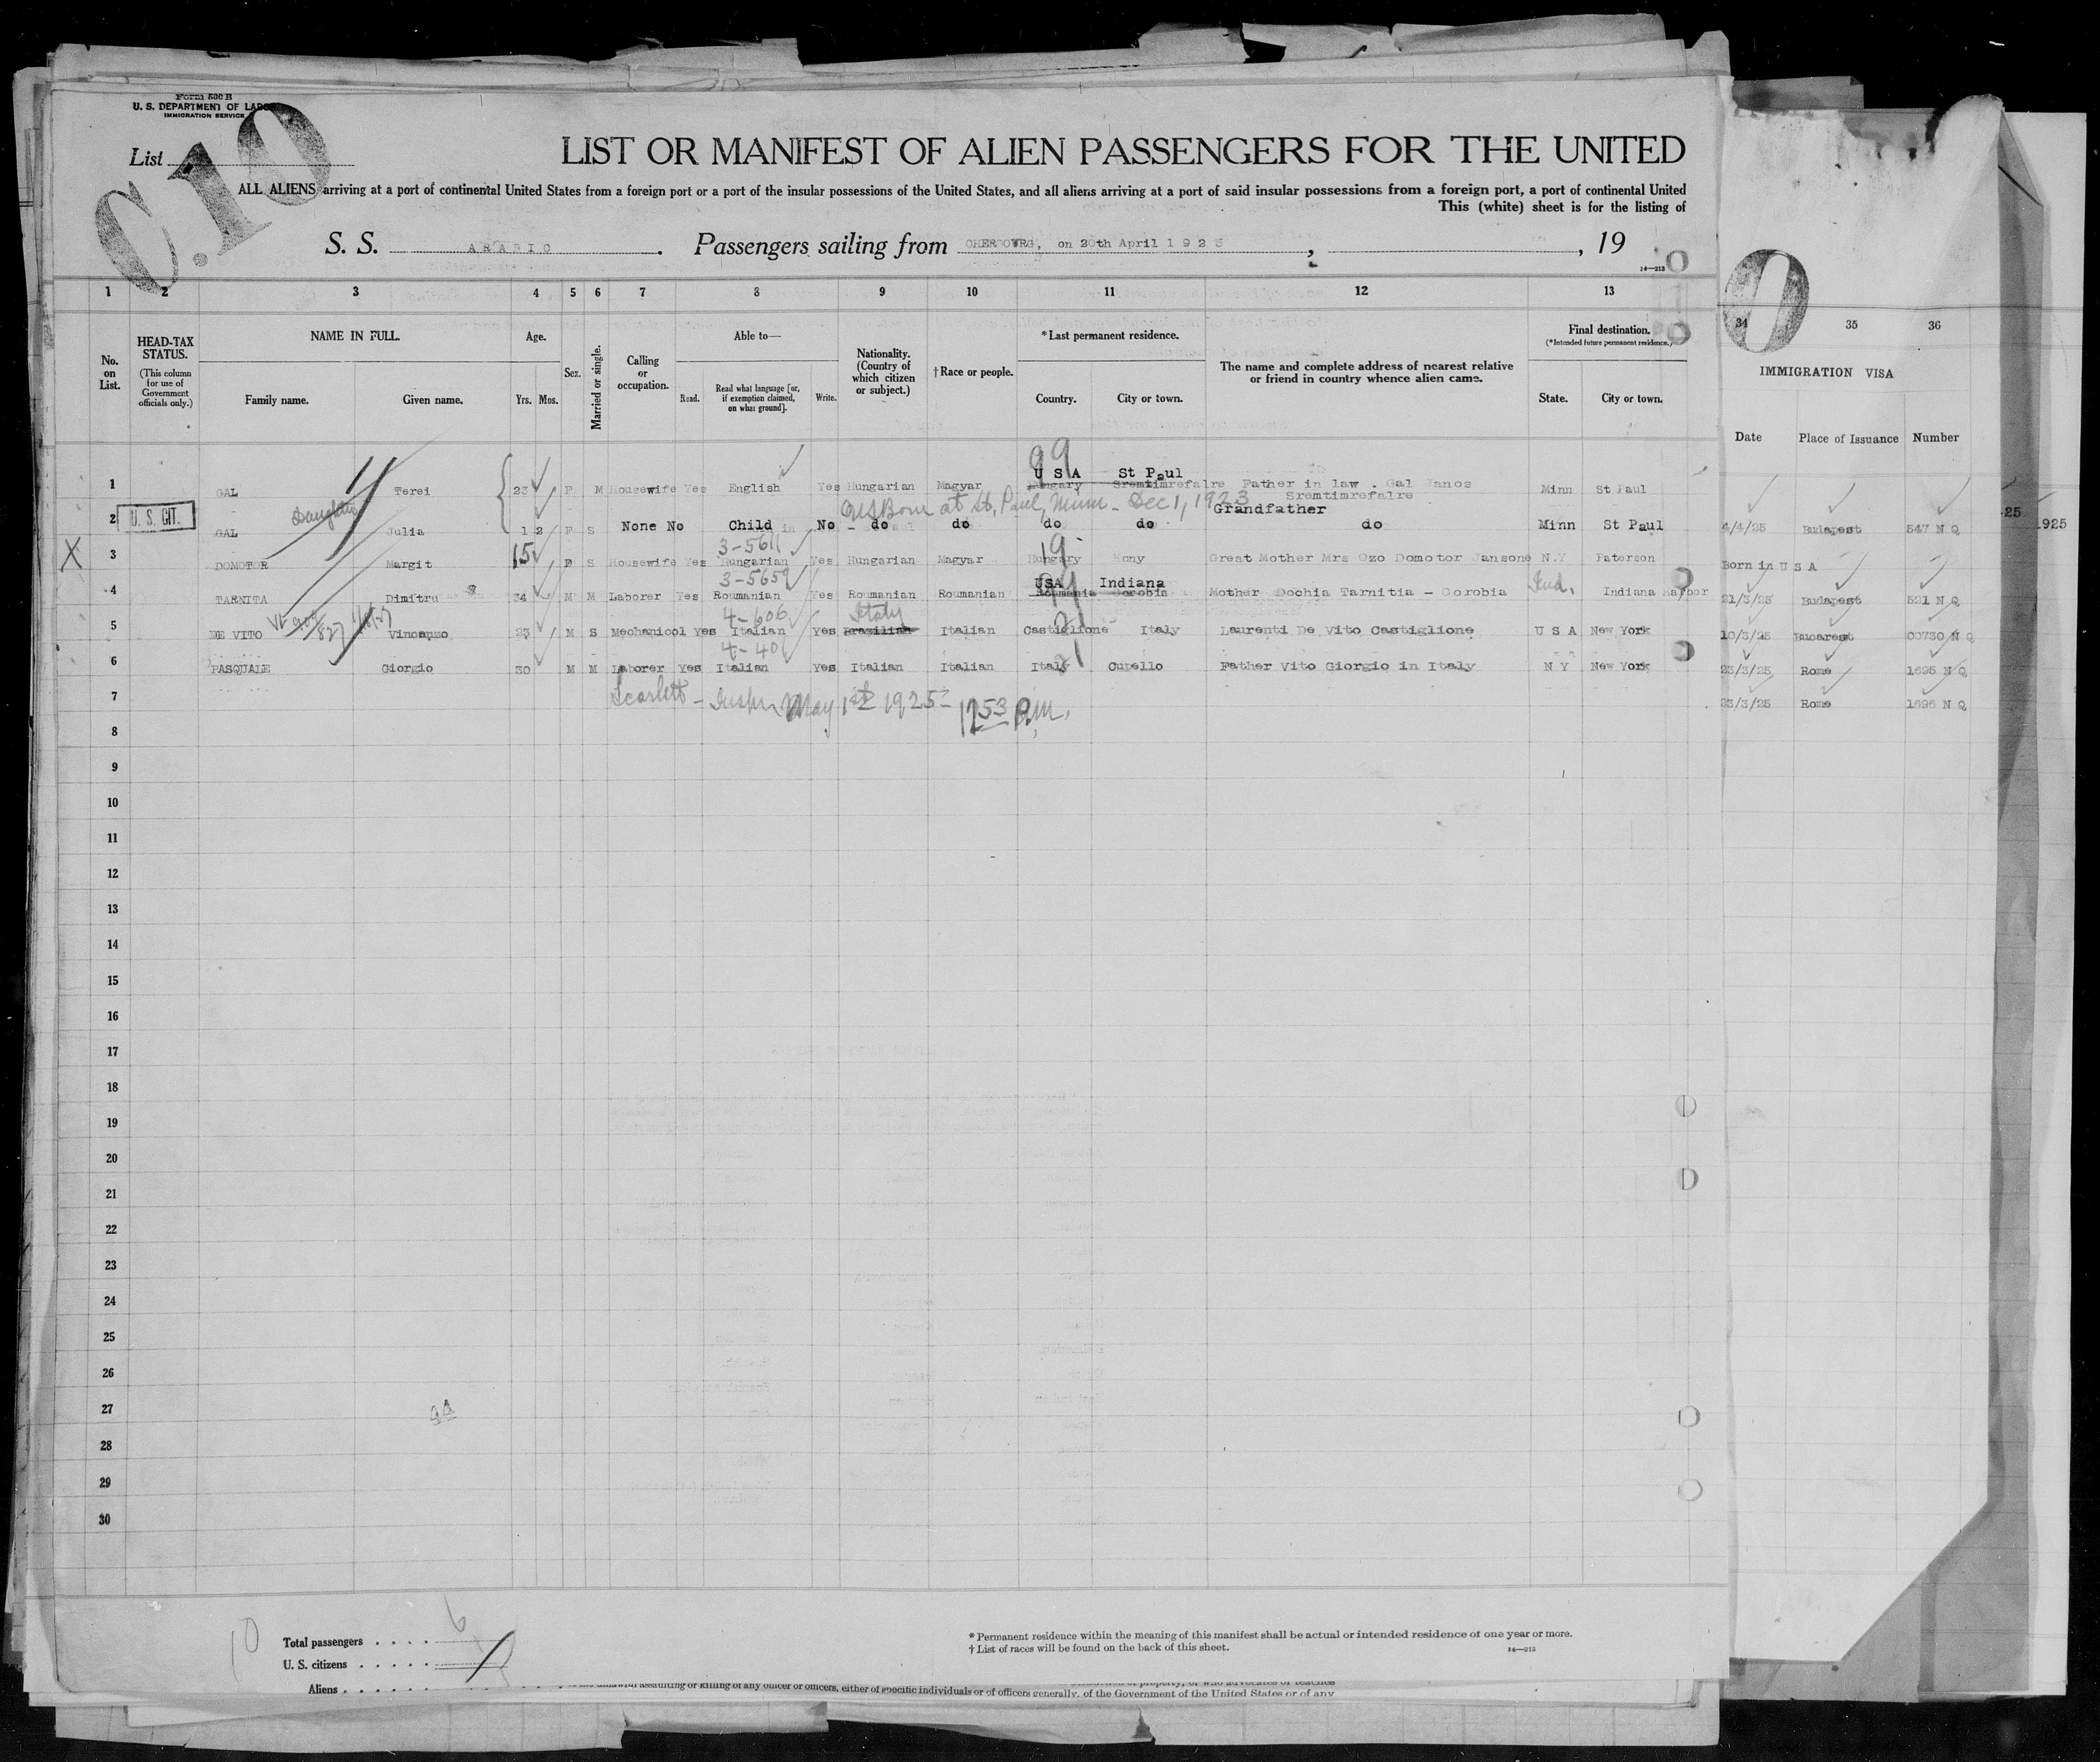 Form 500 B
U. S. DEPARTMENT OF LABOR
IMMIGRATION SERVICE
C.10
List
LIST OR MANIFEST OF ALIEN PASSENGERS FOR THE UNITED
ALL ALIENS arriving at a port of continental United States from a foreign port or a port of the insular possessions of the United States, and all aliens arriving at a port of said insular possessions from a foreign port, a port of continental United
This (white) sheet is for the listing of
S. S. ARABIC. Passengers sailing from CHERBOURG, on 20th April 1925, , 19
14—213
1 2 3 4 5 6 7 8 9 10 11 12 13
No. on List.
HEAD-TAX STATUS.
(This column for use of Government officials only.)
NAME IN FULL.
Family name. Given name.
Age.
Yrs. Mos.
Sex.
Married or single.
Calling or occupation.
Able to—
Read. Read what language [or, if exemption claimed, on what ground]. Write.
Nationality. (Country of which citizen or subject.)
†Race or people.
*Last permanent residence.
Country. City or town.
The name and complete address of nearest relative or friend in country whence alien came.
Final destination.
(*Intended future permanent residence.)
State. City or town.
34 35 36
IMMIGRATION VISA
Date Place of Issuance Number
99
U S A St Paul
1 GAL Terei 23 F M Housewife Yes English Yes Hungarian Magyar Hungary Sremtimrefalre Father in law . Gal Janos Minn St Paul
Sremtimrefalre
Daughter
US Born at St. Paul, Minn - Dec 1, 1923
Grandfather
2 U. S. CIT. GAL Julia 1 2 F S None No Child No - do do do do do Minn St Paul
4/4/25 Budapest 547 N Q
25 1925
3-5611
X 3 DOMOTOR Margit 15 F S Housewife Yes Hungarian Yes Hungarian Magyar Hungary Kony Great Mother Mrs Ozo Domotor Jansone N.Y Paterson
Born in U S A
3-5659
USA Indiana
4 TARNITA Dimitru 34 M M Laborer Yes Roumanian Yes Roumanian Roumanian Roumania Corobia Mother Dochia Tarnitia - Corobia Ind. Indiana Harbor
21/3/25 Budapest 521 N Q
4-606
Italy
5 DE VITO Vincenzo 23 M S Mechanicol Yes Italian Yes Brazilian Italian Castiglione Italy Laurenti De Vito Castiglione U S A New York
10/3/25 Bucarest 00730 N Q
4-401
6 PASQUALE Giorgio 30 M M Laborer Yes Italian Yes Italian Italian Italy Cupello Father Vito Giorgio in Italy N Y New York
23/3/25 Rome 1695 N Q
7 Scarlett - Inspr May 1st 1925 - 1253 P.M.
23/3/25 Rome 1696 N Q
8
9
10
11
12
13
14
15
16
17
18
19
20
21
22
23
24
25
26
27
28
29
30
10
Total passengers . . . . 6
U. S. citizens . . . . .
Aliens
* Permanent residence within the meaning of this manifest shall be actual or intended residence of one year or more.
† List of races will be found on the back of this sheet.
14—213
assaulting or killing of any officer or officers, either of specific individuals or of officers generally, of the Government of the United States or of any